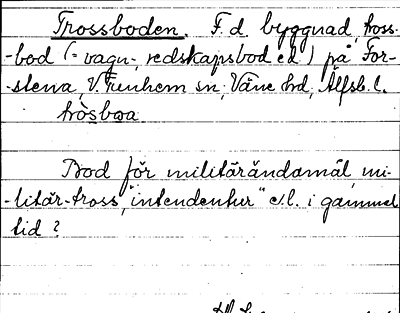 Trossboden. F. d. byggnad, tross-
-bod (= vagn-, redskapsbod e d) på For-
-stena, V. Tunhem sn, Väne hd, Älfsb. l.
tròsbωa.
Bod för militärändamål, mi-
-litär-tross, "intendentur" e. l. i gammal
tid?